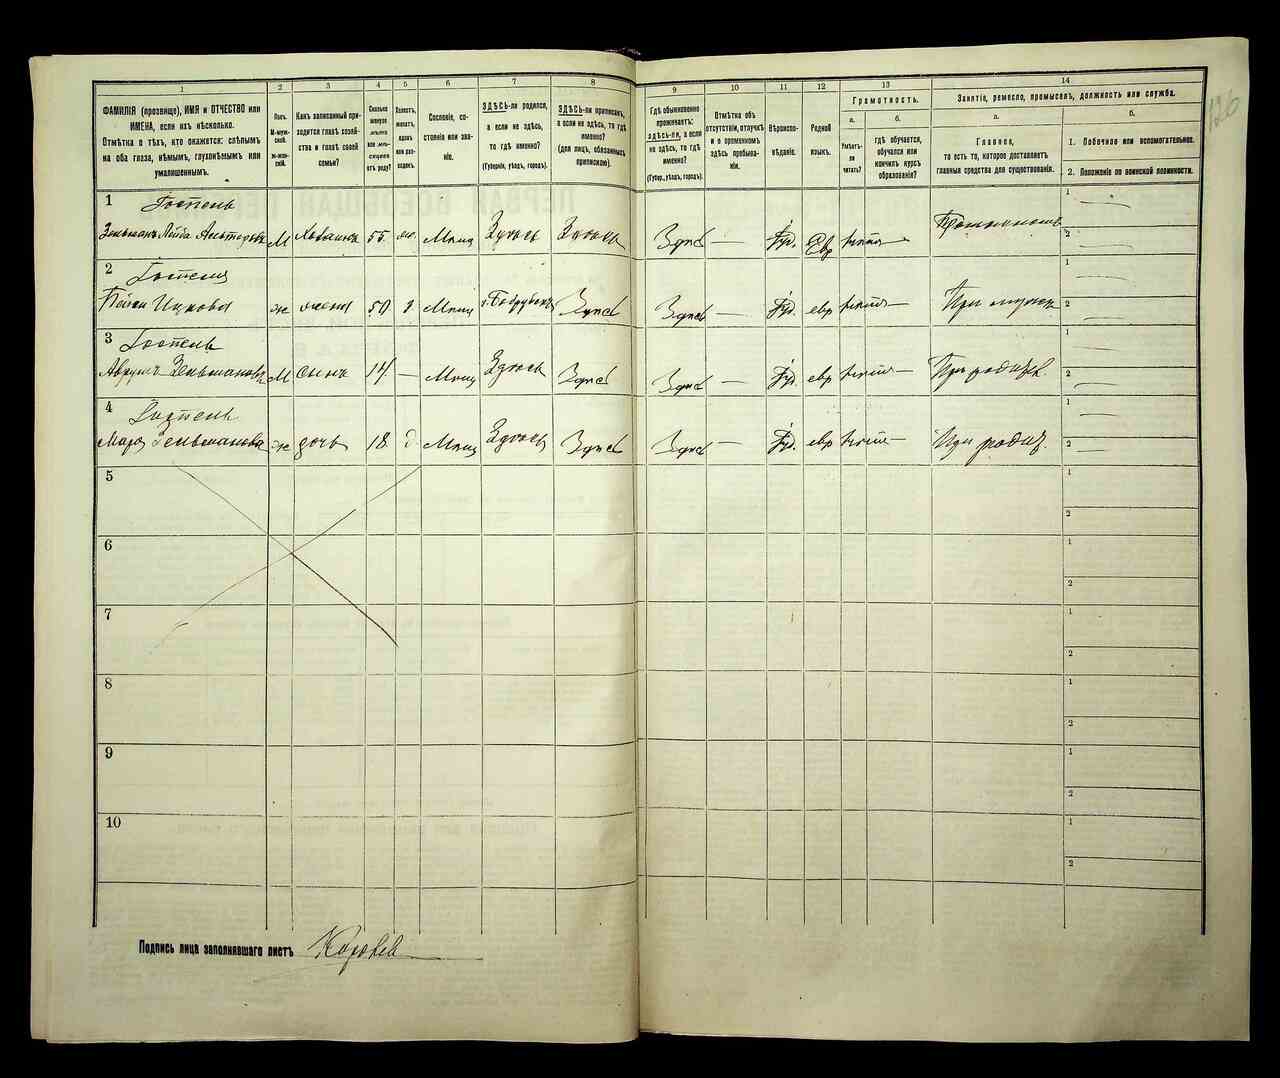 1 2 3 4 5 6 7 8 9 10 11 12 13 14
ФАМИЛІЯ (прозвище), ИМЯ и ОТЧЕСТВО или
ИМЕНА, если ихъ нѣсколько.
Отмѣтка о тѣхъ, кто окажется: слѣпымъ
на оба глаза, нѣмымъ, глухонѣмымъ или
умалишеннымъ.
Полъ.
М-муж-
ской.
ж-жен-
скій.
Какъ записанный при-
ходится главѣ хозяй-
ства и главѣ своей
семьи?
Сколько
минуло
лѣтъ
или мѣ-
сяцевъ
отъ роду?
Холостъ,
женатъ,
вдовъ
или раз-
веденъ.
Сословіе, со-
стояніе или зва-
ніе.
ЗДѢСЬ-ли родился,
а если не здѣсь,
то гдѣ именно?
(Губернія, уѣздъ, городъ).
ЗДѢСЬ-ли приписанъ,
а если не здѣсь, то гдѣ
именно?
(для лицъ, обязанныхъ
припискою).
Гдѣ обыкновенно
проживаетъ:
здѣсь-ли, а если
не здѣсь, то гдѣ
именно?
(Губер., уѣздъ, городъ).
Отмѣтка объ
отсутствіи, отлучкѣ
и о временномъ
здѣсь пребыва-
ніи.
Вѣроиспо-
вѣданіе.
Родной
языкъ.
Грамотность.
а.
Умѣетъ-
ли
читать?
б.
гдѣ обучается,
обучался или
кончилъ курсъ
образованія?
Занятіе, ремесло, промыселъ, должность или служба.
а.
Главное,
то есть то, которое доставляетъ
главныя средства для существованія.
б.
1. Побочное или вспомогательное.
2. Положеніе по воинской повинности.
126
1 Гостель
Зельманъ Лейба М хозяинъ 55 Мѣщ Здѣсь Здѣсь Здѣсь — Іуд. Евр
1
2
2
Ицкова ж жена 50 Мѣщ г. Бобруйск Здѣсь Здѣсь — Іуд. евр — При мужѣ
1
2
3 Гостель
Зельмановъ М сынъ 14 — Мѣщ Здѣсь Здѣсь Здѣсь — Іуд. евр — При родит.
1
2
4 Гостель
Зельманова ж дочь 18 Мѣщ Здѣсь Здѣсь Здѣсь — Іуд. евр — При родит.
1
2
5 1
2
6 1
2
7 1
2
8 1
2
9 1
2
10 1
2
Подпись лица заполнявшаго листъ